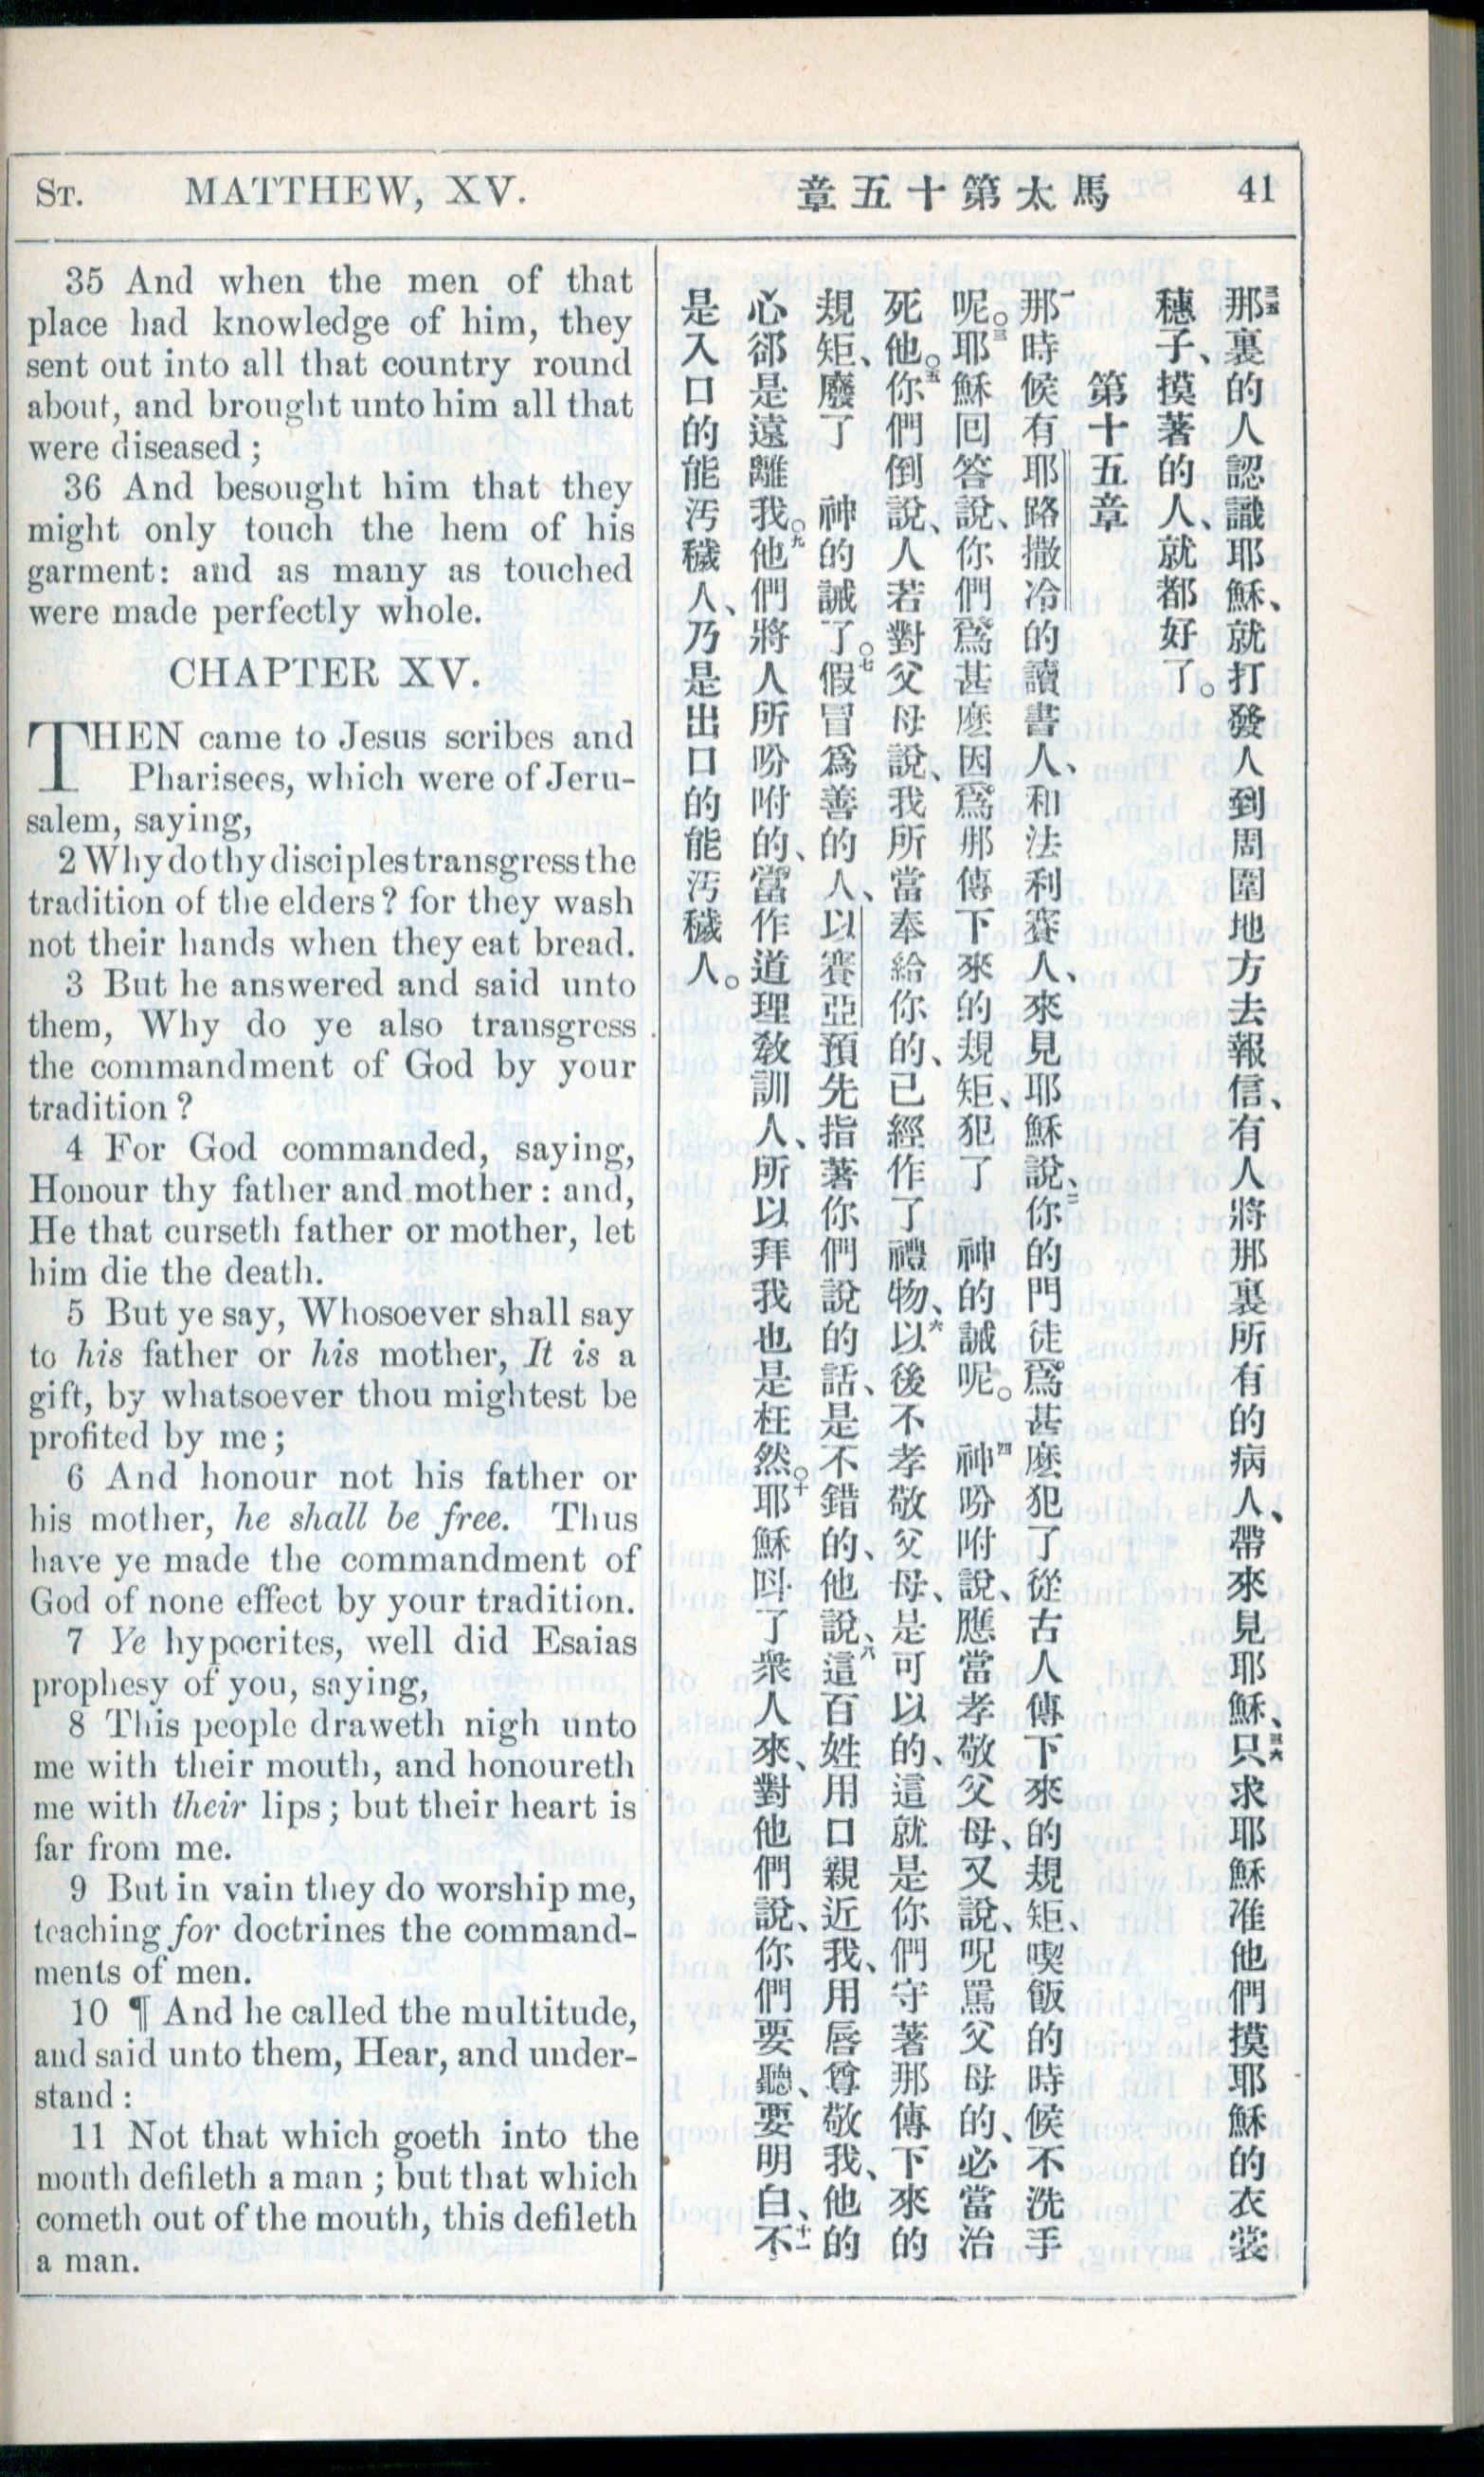 ST. MATTHEW, XV.
章五十第太馬
41
35 And when the men of that
place had knowledge of him, they
sent out into all that country round
about, and brought unto him all that
were diseased ;
36 And besought him that they
might only touch the hem of his
garment: and as many as touched
were made perfectly whole.
CHAPTER XV.
THEN came to Jesus scribes and
Pharisees, which were of Jeru-
salem, saying,
2 Why do thy disciples transgress the
tradition of the elders? for they wash
not their hands when they eat bread.
3 But he answered and said unto
them, Why do ye also transgress
the commandment of God by your
tradition ?
4 For God commanded, saying,
Honour thy father and mother : and,
He that curseth father or mother, let
him die the death.
5 But ye say, Whosoever shall say
to his father or his mother, It is a
gift, by whatsoever thou mightest be
profited by me;
6 And honour not his father or
his mother, he shall be free. Thus
have ye made the commandment of
God of none effect by your tradition.
7 Ye hypocrites, well did Esaias
prophesy of you, saying,
8 This people draweth nigh unto
me with their mouth, and honoureth
me with their lips; but their heart is
far from me.
9 But in vain they do worship me,
teaching for doctrines the command-
ments of men.
10 ¶ And he called the multitude,
and said unto them, Hear, and under-
stand :
11 Not that which goeth into the
mouth defileth a man ; but that which
cometh out of the mouth, this defileth
a man.
三五那裏的人認識耶穌、就打發人到周圍地方去報信、有人將那裏所有的病人、帶來見耶穌、三六只求耶穌准他們摸耶穌的衣裳
穗子、摸著的人、就都好了。
第十五章
一那時候有耶路撒冷的讀書人、和法利賽人、來見耶穌說、二你的門徒爲甚麽犯了從古人傳下來的規矩、喫飯的時候不洗手
呢。三耶穌回答說、你們爲甚麽因爲那傳下來的規矩、犯了 神的誡呢。四神吩咐說、應當孝敬父母、又說、呪罵父母的、必當治
死他。五你們倒說、人若對父母說、我所當奉給你的、已經作了禮物、六以後不孝敬父母、是可以的、這就是你們守著那傳下來的
規矩、廢了 神的誡了。七假冒爲善的人、以賽亞預先指著你們說的話、是不錯的、他說、八這百姓用口親近我、用唇尊敬我、他的
心郤是遠離我。九他們將人所吩咐的、當作道理教訓人、所以拜我也是枉然。十耶穌呌了衆人來、對他們說、你們要聽、要明白、十一不
是入口的能汚穢人、乃是出口的能汚穢人。